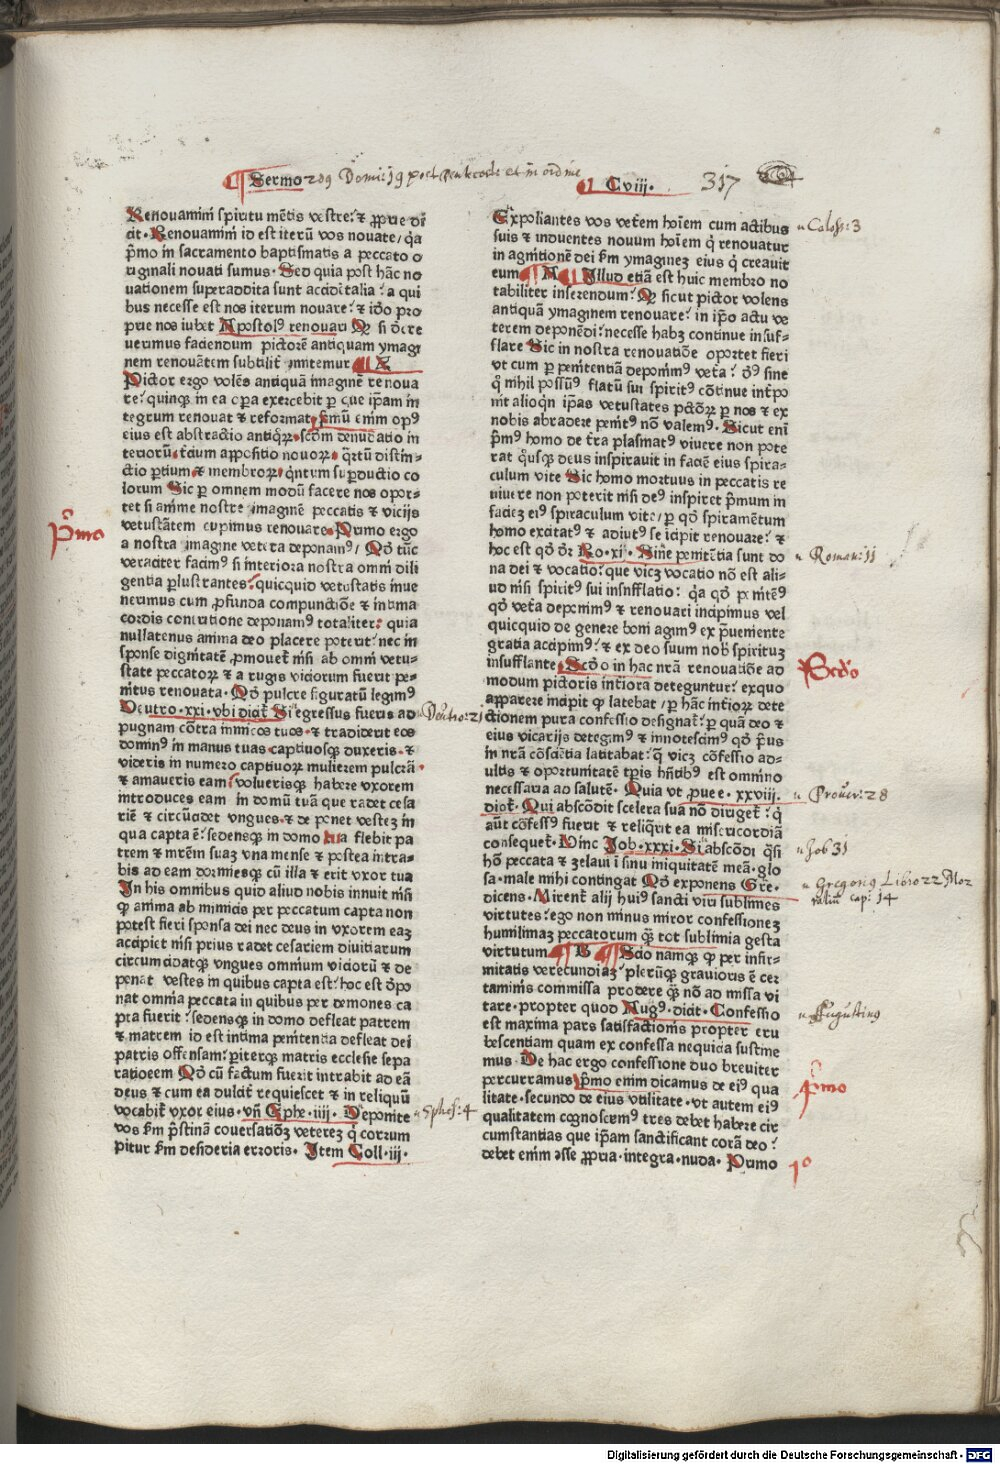 Sermo 209 Domi: 19 post Pentecosten et in ordine Cviij. 317
Renouamini spiritu mētis vestre: ⁊ ꝓprie di
cit. Renouamini id est iterū vos nouate/ q̄a
p̄mo in sacramento baptismatis a peccato o
riginali nouati sumus. Sed quia post hāc no
uationem superaddita sunt accidētalia: a qui
bus necesse est nos iterum nouare: ⁊ iđo pro
prie nos iubet Apostolꝰ renouari Q si đcre
uerimus faciendum pictorē antiquam ymagi
nem renouātem subtilit̄ imitemur A
Pictor ergo volēs antiquā imaginē renoua
re: quinqꝫ in ea oꝑa exercebit ꝑ que ip̄am in
tegrum renouat ⁊ reformat. p̄mū enim opꝰ
eius est abstractio antiqꝝ. scđm denudatio in
teriorū. tcium appositio nouoꝝ. qrtū distin-
ctio ꝑtium. ⁊ membroꝝ. qntum suꝑductio co
lorum Sic ꝑ omnem modū facere nos opor-
tet si anime nostre imaginē peccatis ⁊ vicijs
vetustātem cupimus renouare. Primo ergo
a nostra imagine vetera deponamꝰ/ Qđ tūc
veraciter facimꝰ si interiora nostra omni dili
gentia ꝑlustrantes: quicquid vetustatis inue
nerimus cum ꝓfunda compunctiōe ⁊ intima
cordis contritione deponamꝰ totaliter: quia
nullatenus anima deo placere poterit: nec in
sponse dignitatē ꝓmouet̄ nisi ab omni vetu-
state peccatoꝝ ⁊ a rugis viciorum fuerit pe-
nitus renouata. Qđ pulcre figuratū legimꝰ
Deutro. xxi. vbi dicit̄ Si egressus fueris ad
pugnam cōtra inimicos tuos. ⁊ tradiderit eos
dominꝰ in manus tuas captiuosqꝫ duxeris. ⁊
videris in numero captiuoꝝ mulierem pulcrā.
⁊ amaueris eam. volueriſqꝫ habere vxorem
introduces eam in domū tuā que radet cesa
riē ⁊ circūcidet vngues. ⁊ deponet vestem in
qua capta ē: sedensqꝫ in domo tua flebit pa
trem ⁊ mr̄em suaꝫ vna mense ⁊ postea intra-
bis ad eam dormiesqꝫ cū illa ⁊ erit vxor tua
In his omnibus quid aliud nobis innuit nisi
ꝙ anima ab inimicis per peccatum capta non
potest fieri sponsa dei nec deus in vxorem eaꝫ
accipiet nisi prius radet cesariem diuitiarum
circumcidatqꝫ vngues omnium viciorū ⁊ de
ponat vestes in quibus capta est: hoc est đpo
nat omnia peccata in quibus per demones ca
pta fuerit: sedensqꝫ in domo defleat patrem
⁊ matrem id est intima penitentia defleat dei
patris offensam: ꝑiterqꝫ matris ecclesie sepa
rationem Qđ cū factum fuerit intrabit ad eā
deus ⁊ cum ea dulcit̄ requiescet ⁊ in reliquū
vocabit̄ vxor eius. vn̄ Ephe. iiij. Deponite
vos ẜm p̄stinā cōuersatiōꝫ vetereꝫ q̇ corrum
pitur ẜm desideria erroris. Item Coll. iij.
Expoliantes vos vet̄em hoīem cum actibus
suis ⁊ induentes nouum hoīem q̇ renouatur
in agnitionē dei ẜm ymagineꝫ eius q̇ creauit
eum Illud etiā est huic membro no
tabiliter inserendum: Q sicut pictor volens
antiquā ymaginem renouare: in ip̄o actu ve
terem deponēdi: necesse habꝫ continue insuf-
flare Sic in nostra renouatiōe oportet fieri
vt cum ꝑ penitentiā deponimꝰ vet̄a: đꝰ sine
q̄ nihil possūꝰ flatū sui spiritꝰ cōtinue int̄po
nit alioqn ip̄as vetustates pctōꝝ ꝑ nos ⁊ ex
nobis abradere penitꝰ nō valemꝰ. Sicut eni
p̄mꝰ homo de t̄ra plasmatꝰ viuere non pote
rat qusqꝫ deus inspirauit in faciē eius spira-
culum vite Sic homo mortuus in peccatis re
uiuere non poterit nisi deꝰ inspiret p̄mum in
facieꝫ eiꝰ spiraculum vite/ ꝑ qđ spiramētum
homo excitatꝰ ⁊ adiutꝰ se icipit renouare: ⁊
hoc est qđ đr Ro. xi. Sine penitētia sunt do
na dei ⁊ vocatio: que viꝫ vocatio nō est ali-
ud nisi spiritꝰ sui insufflatio: q̄a qđ penitēꝰ
qđ vet̄a deponimꝰ ⁊ renouari incipimus vel
quicquid de genere boni agimꝰ ex p̄ueniente
gratia accipimꝰ: ⁊ ex deo suum nob̄ spirituꝫ
insufflante Scđo in hac nr̄a renouatiōe ad
modum pictoris int̄iora deteguntur: exquo
apparere incipit ꝙ latebat/ ꝑ hāc int̄ioꝝ dete
ctionem pura confessio designat̄: ꝑ quā deo ⁊
eius vicarijs detegimꝰ ⁊ innotescimꝰ qđ p̄us
in nr̄a cōsciētia latitabat: q̄ vicꝫ cōfessio ad-
ultis ⁊ oportunitatē tꝑis hn̄tibꝰ est omnino
necessaria ad salutē. Quia vt ꝓuer. xxviij.
dicit̄. Qui abscōdit scelera sua nō diriget̄: q̇
aūt cōfessꝰ fuerit ⁊ reliq̇rit ea misericordiā
consequet̄. Hinc Job. xxxi. Si abscōdi qsi
hō peccata ⁊ zelaui i sinu iniquitatē meā. glo
sa. male mihi contingat Qđ exponens Gre.
dicens. Mirent̄ alij huiꝰ sancti viri sublimes
virtutes: ego non minus miror confessioneꝫ
humilimaꝫ peccatorum q̄ꝫ tot sublimia gesta
virtutum B Scio namqꝫ ꝙ per infir-
mitatis verecundiaꝫ plerūqꝫ grauioris ē cer
taminis commissa prodere q̄ꝫ nō admissa vi
tare. propter quod Augꝰ. dicit. Confessio
est maxima pars satisfactionis propter eru
bescentiam quam ex confessa nequicia sustine
mus. De hac ergo confessione duo breuiter
percurramus p̄mo enim dicamus de eiꝰ qua
litate. secundo de eius vtilitate. vt autem eiꝰ
qualitatem cognoscemꝰ tres debet habere cir
cumstantias que ip̄am sanctificant corā deo:
debet enim esse ꝓpria. integra. nuda. Primo
p̄mo
Deutro: 21
Ephes: 4
Coloss: 3
Roman: 11
Scđo
Prouer: 28
Job 31
Gregoriꝰ Libro 22 Mor
ralium cap: 14
Augustinꝰ
p̄mo
1º
Digitalisierung gefördert durch die Deutsche Forschungsgemeinschaft - DFG